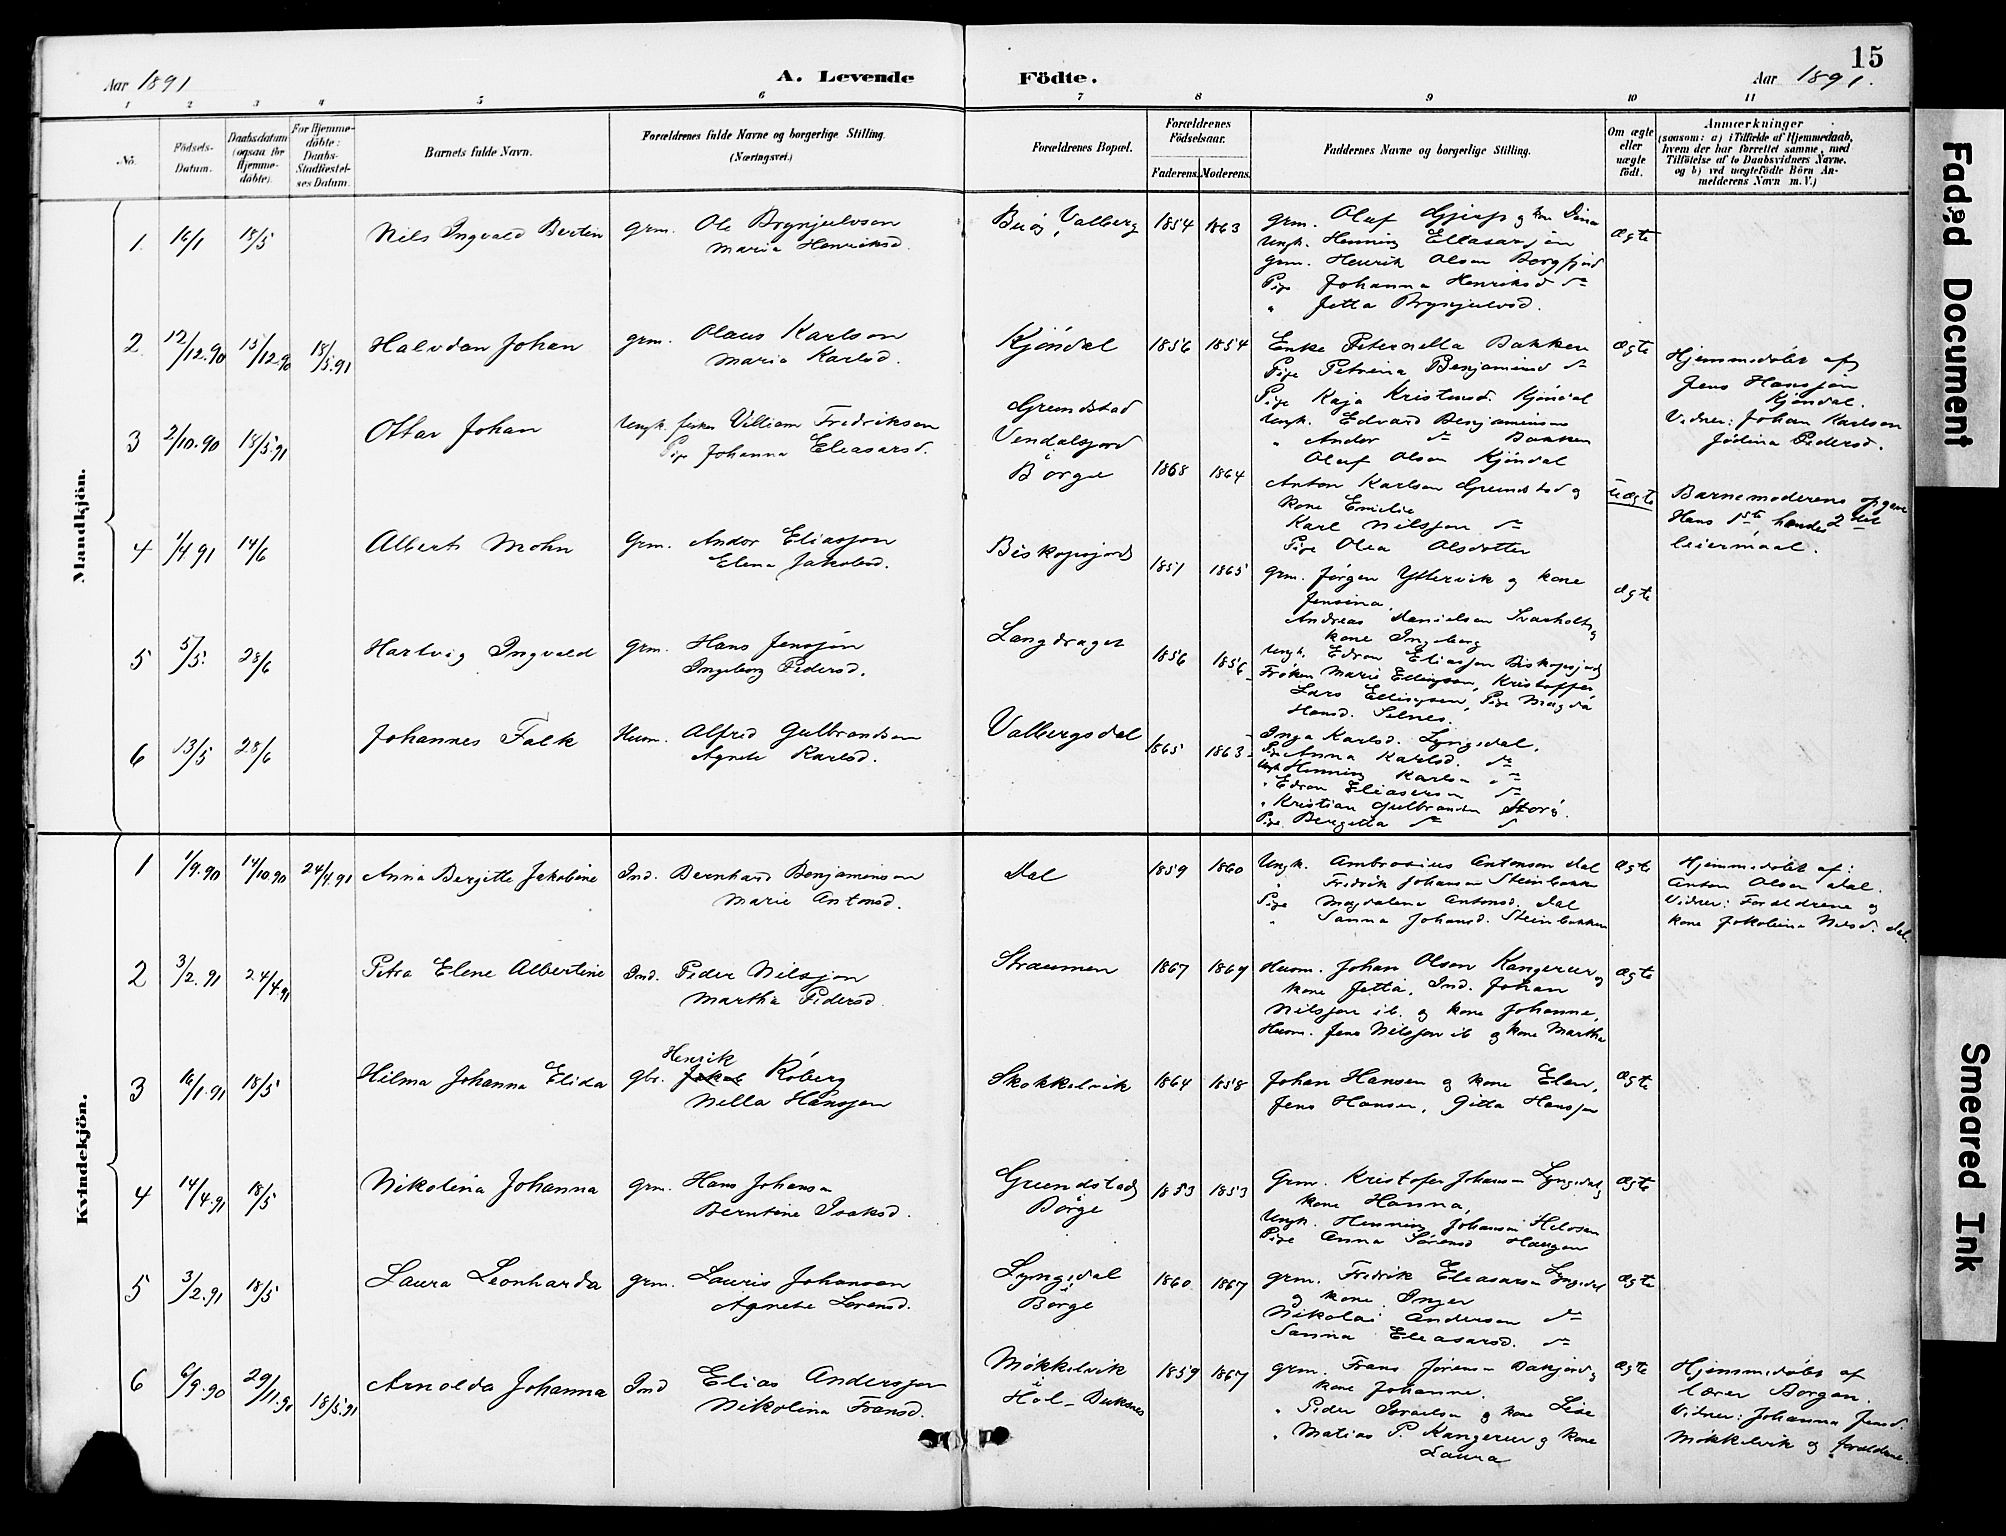 15
Aar 1891
A. Levende
Födte.
Aar 1891.
1 2 3 4 5 6 7 8 9 10 11
No.
Födsels-
Datum.
Daabsdatum
(ogsaa for
Hjemme-
döbte).
For Hjemme-
döbte:
Daabs-
Stadfæstel-
ses Datum.
Barnets fulde Navn.
Forældrenes fulde Navne og borgerlige Stilling.
(Næringsvei.)
Forældrenes Bopæl.
Forældrenes
Födselsaar.
Faderens. Moderens.
Faddernes Navne og borgerlige Stilling.
Om ægte
eller
uægte
födt.
Anmærkninger
(saasom: a) i Tilfælde af Hjemmedaab,
hvem der har forrettet samme, med
Tilföielse af to Daabsvidners Navne,
og b) ved uægtefödte Börn An-
melderens Navn m.V.)
Mandkjön.
1. 16/1 18/5 Nils Ingvald Bertin grm. Ole Brynjulvson
Maria Henriksd.
Valberg 1854 1863
grm. Oluf & kone Dina
Ungk. Henning Eliasarsjøn
grm. Henrik Olsen Borgfjord
Pige Johanna Henriksd do
" Jetta Brynjulvsd.
Ægte
2. 12/12.90 15/12.90 18/5.91 Halvdan Johan grm. Olaus Karlson
Maria Karlsd.
Kjøndal 1856 1854
Enke Peternella Bakken
Pige Petrina Benjamind do
Pige Kaja Kristensd. Kjøndal
Ungk. Edvard Benjaminsen
" Andor do Bakken
Oluf Olsen Kjøndal
Ægte
Hjemmedøbt af
Jens Hansjøn
Kjøndal.
Vidner: Johan Karlson
Pedersd.
3 2/10.90 18/5.91 Ottar Johan Ungk. fisker Villiam Fredriksen
Pige Johanna Eleasarsd.
Grundstad
Børge 1868 1864
Anton Karlsen Grundstad &
kone Emilie
Karl Nilsjøn do
Pige Olea Olsdotter
Uægte
Barnemoderens opgave
Hans 1ste, hendes 2det
leiermaal.
4 1/4 91 14/6 Albert Mohn Grm. Andor Eliasjøn
Elena Jakobsd.
Biskopsjord 1851 1865
grm. Jørgen Yttervik & kone
Jensina,
Andreas Danielsen Svarholt &
kone Ingeborg
Ungk. Edvon Eliasjøn Biskopsjord
Ægte
5 5/5. 28/6 Hartvig Ingvald grm. Hans Jensjøn
Ingeborg Pedersd.
Langdraget 1856 1856
Frøken Marie Ellingsen, Kristoffer,
Lars Ellingsen, Pige Magda
Hansd. Selnes.
6 13/5 28/6 Johannes Falk Husm. Alfred Gulbrandsen
Agnete Karlsd.
Valbergsdal 1865 1863
Inga Karlsd. Lyngsdal,
Pige Anna Karlsd. do
Ungk Henning Karlsen do
" Edvon Eliasersen do
" Kristian Gulbrandsen Storø.
Pige Bergetta do
Kvindekjön.
1 1/9.90 14/10.90 24/4.91 Anna Bergitte Jakobine Ind. Bernhard Benjaminson
Marie Antonsd.
Dal 1859 1860
Ungk. Ambrosius Antonson Dal
" Fredrik Johansen Steinbakken
Pige Magdalena Antonsd. Dal
" Sanna Johansd. Steinbakken
Ægte
Hjemmedøbt af:
Anton Olsen Dal.
Vidner: Forældrene &
kone Jakobina Nilsd. Dal
2 3/2.91 24/4.91 Petra Elene Albertine Ind. Peder Nilsjøn
Martha Pedersd.
Straumen 1867 1867
Husm. Johan Olsen Kangerur &
kone Jetta, Ind. Johan
Nilsjøn ib. & kone Johanne,
Husm. Jens Nilsjøn ib & kone Martha
Ægte
3 16/1.91 18/5 Hilma Johanna Elida gbr. Henrik Røberg
Nella Hansjøn
Skokkelvik 1864 1858
Johan Hansen & kone Elen,
Jens Hansen, Gitta Hansjøn
Ægte
4 14/4.91 18/5 Nikolina Johanna grm. Hans Johansen
Berntine Isaksd.
Grundstad
i
Børge
1853 1853
Grm. Kristofer Johansen Lyngsdal &
kone Hanna,
Ungk. Henning Johansen
Pige Anna Sørensd Haugen
Ægte
5 3/2.91 18/5 Laura Leonharda grm. Lauris Johansen
Agnete Sørensd.
Lyngsdal
i
Børge
1860 1867
grm. Fredrik Eleasarsen Lyngsdal
& kone Inger
Nikolai Andersen do
Sanna Eleasarsd. do
Ægte
6 6/9.90 29/11.90 18/5.91 Arnolda Johanna Ind Elias Andersjøn
Nikolina Fransd.
Møkkelvik
i
Hol - Buksnes
1859 1867
grm. Frans Jørensen &
kone Johanne.
" Peder Israelsen & kone Lise
" Matias P. Kangerur & kone
Laura
Ægte
Hjemmedøbt af
lærer Borgan.
Vidner: Johanna Jensd.
Møkkelvik & forældrene.
Faded Document
Smeared Ink